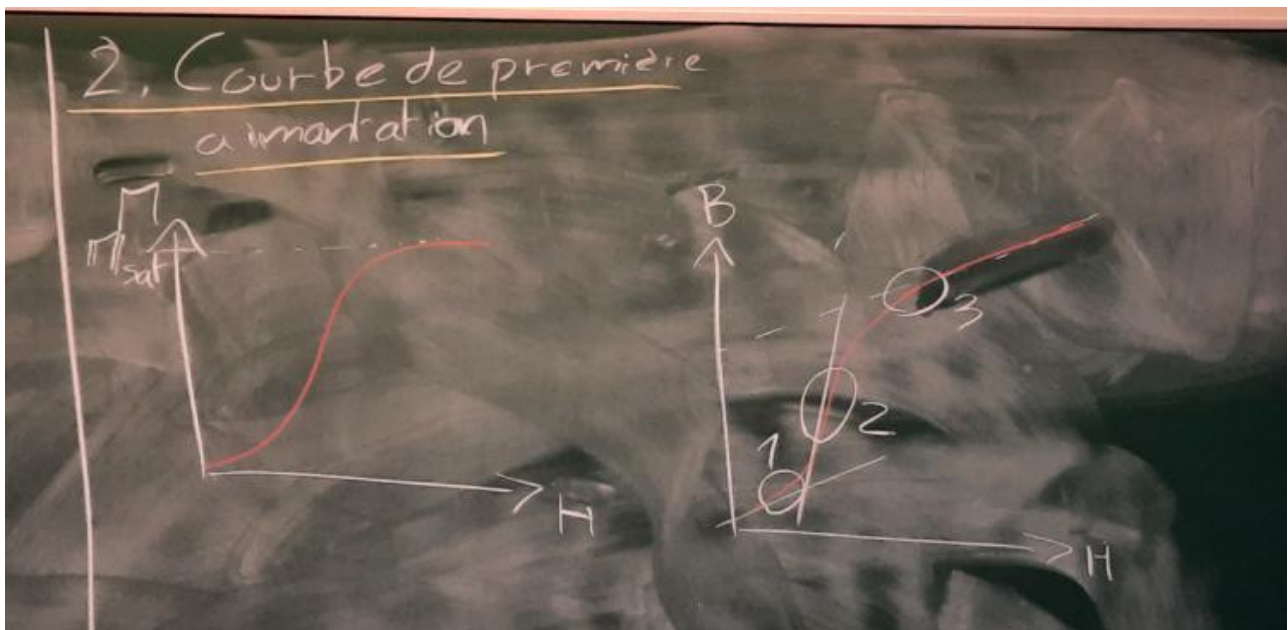 2. Courbe de première
aimantation
M
Msat
H
B
1
2
3
H